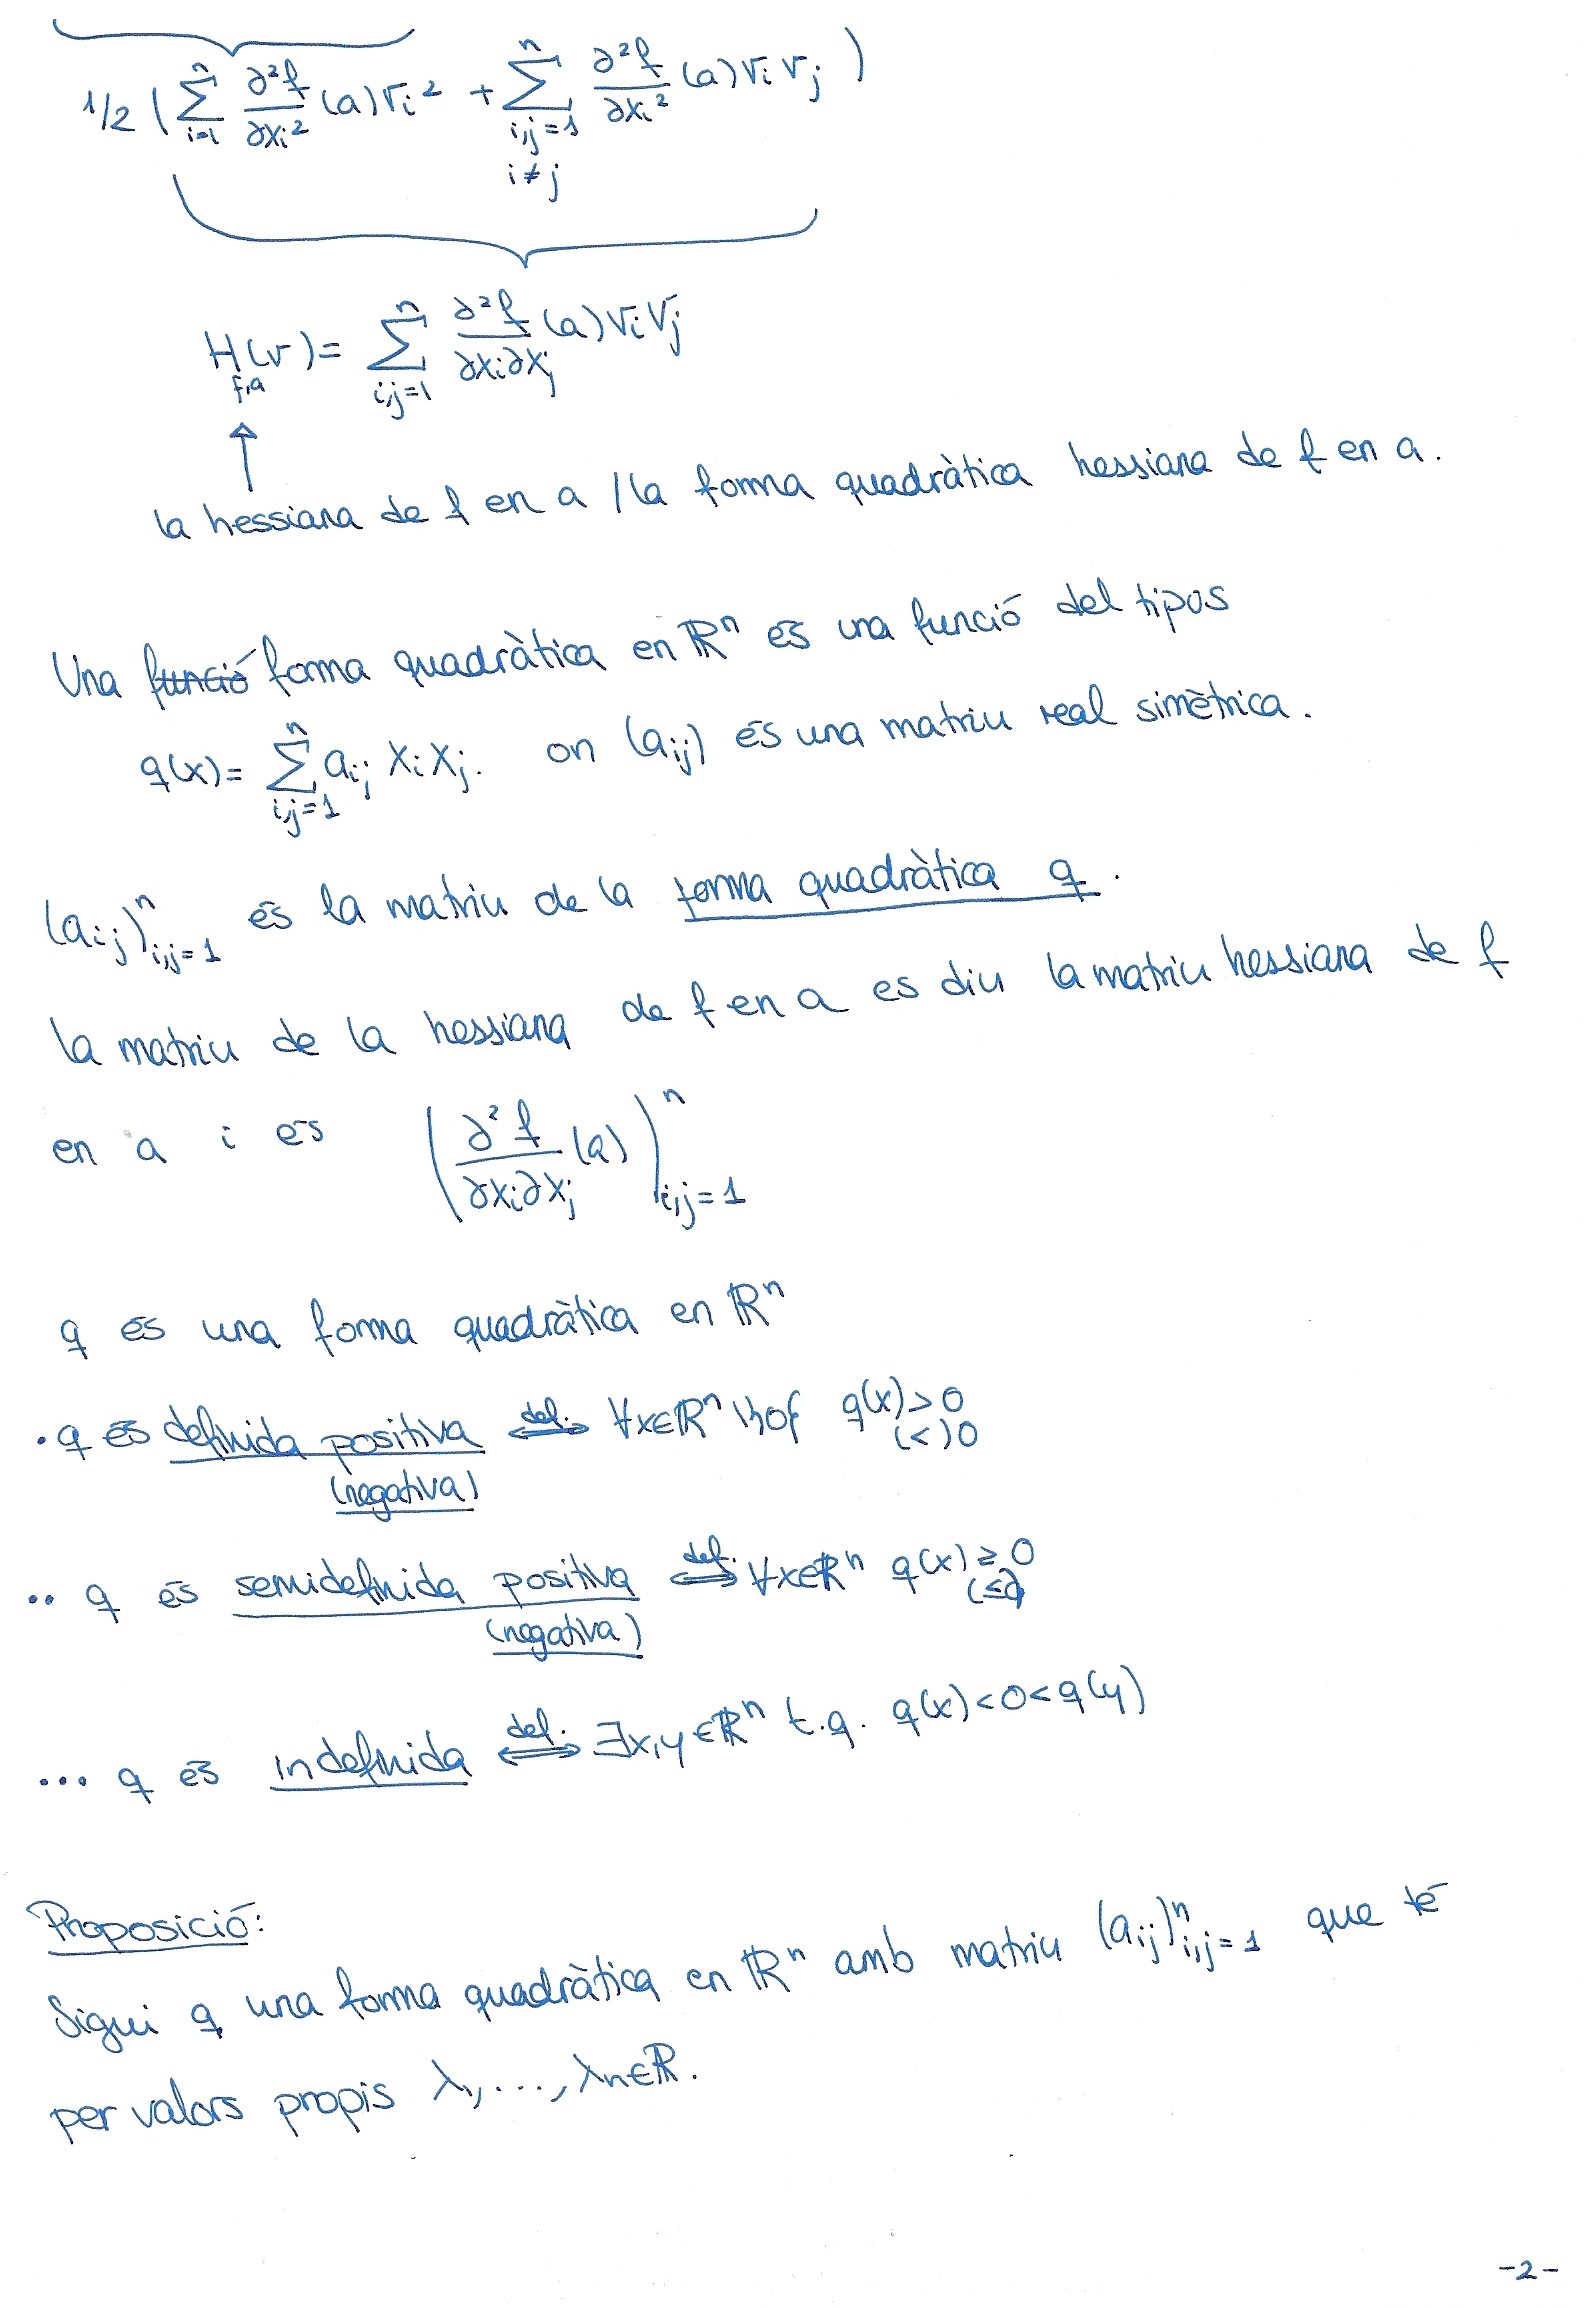 1/2 ( ∑_{i=1}^{n} ∂²f/∂xi² (a) vi² + ∑_{i,j=1, i≠j}^{n} ∂²f/∂xi² (a) vi vj )
H_{f,a}(v) = ∑_{i,j=1}^{n} ∂²f/∂xi∂xj (a) vi vj
↑
la hessiana de f en a / la forma quadràtica hessiana de f en a.
Una ~~funció~~ forma quadràtica en ℝⁿ és una funció del tipos
q(x) = ∑_{i,j=1}^{n} aij xi xj. on (aij) és una matriu real simètrica.
(aij)^n_{i,j=1} és la matriu de la forma quadràtica q.
la matriu de la hessiana de f en a es diu la matriu hessiana de f
en a i és ( ∂²f/∂xi∂xj (a) )^n_{i,j=1}
q és una forma quadràtica en ℝⁿ
• q és definida positiva ⟺def. ∀x∈ℝⁿ\{0} q(x) > 0
(negativa) (<) 0
•• q és semidefinida positiva ⟺def. ∀x∈ℝⁿ q(x) ≥ 0
(negativa) (≤0)
••• q és indefinida ⟺def. ∃x,y∈ℝⁿ t.q. q(x)<0<q(y)
Proposició:
Sigui q una forma quadràtica en ℝⁿ amb matriu (aij)^n_{i,j=1} que té
per valors propis λ1, ..., λn∈ℝ.
-2-